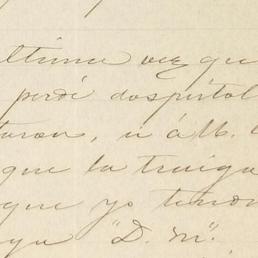 ltima vez que
perdí dospistol
turon, ii á M.
que la traiga
que yo tendr
ya "D. M".